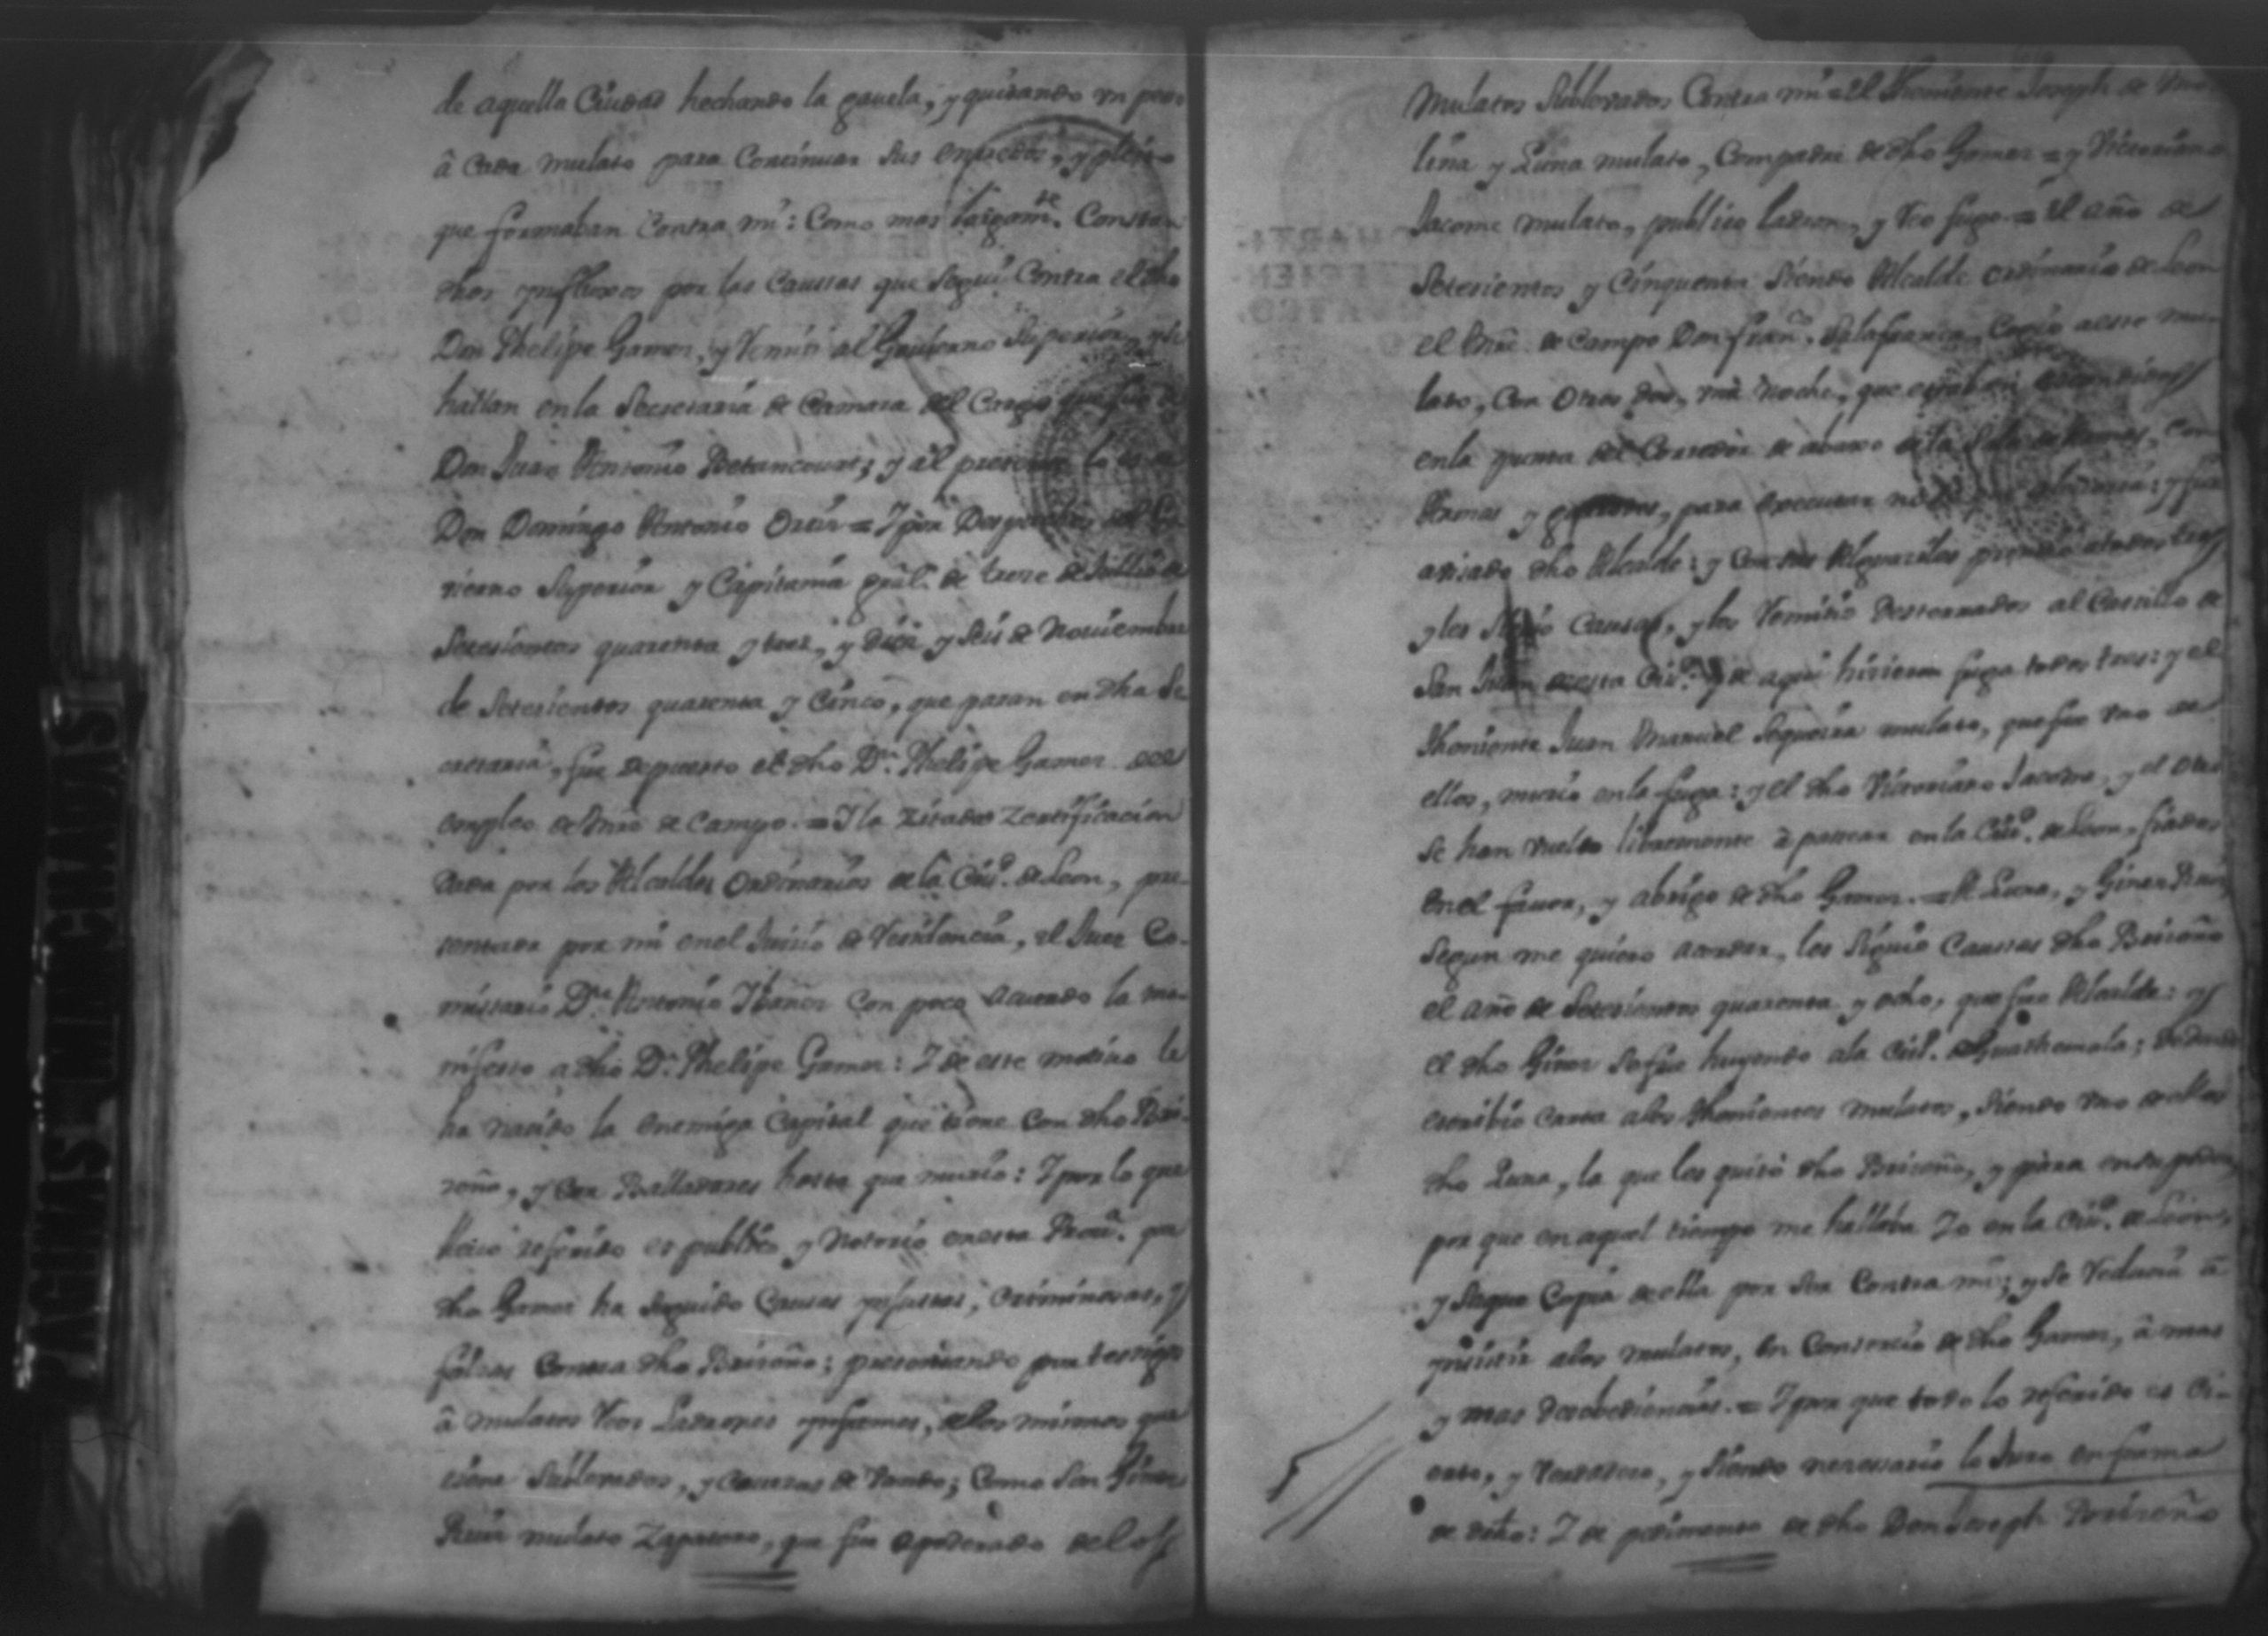 de aquella Ciudad hechando la gauela, y quitando un peso
â cada mulato para Continuar sus enrredos, y pleitos
que formaban Contra mi: Como mas largamte. Constan
dhos ynfluxos por las Caussas que segui Contra el dho
Don Phelipe Gamez, y Remiti al Gouierno Superior, y se
hallan en la Secretaria de Camara del Cargo que fue de
Don Juan Antonio Betancourt; y al presente lo es de
Don Domingo Antonio Ortiz = I por Despachos del Go-
vierno Superior y Capitania gral. de trece de Jullio de
Setesientos quarenta y tres, y diez y seis de Nouiembre
de Setesientos quarenta y Cinco, que paran en dha Se
cretaria, fue depuesto el dho Dn. Phelipe Gamez del
empleo de Mro de Campo. = I la zitada zertificacion
dada por los Alcaldes Ordinarios de la Ciud. de Leon, pre-
sentada por mi en el Juisio de Residencia, el Juez Co-
missario Dn. Antonio Ibañez con poco acuerdo la ma-
nifesto a dho Dn. Phelipe Gamez: I de este motiuo le
ha nacido la enemiga Capital que tiene con dho Bri-
zeño, y con Balladares hasta que murio: I por lo que
lleuo referido es publico y notorio en esta Prou.a que
dho Gamez ha seguido Causas ynjustas, Criminosas, y
falsas Contra dho Brizeño; presentando por testigos
â mulatos Reos Ladrones ynfames, de los mismos que
tiene Sublevados, y Cauezas de Vando; Como son Gines
Ruiz mulato Zapatero, que fue apoderado de los
Mulatos Sublevados Contra mi = El Theniente Joseph de
lina y Luna mulato, Compadre de dho Gamez = y Victoriano
Jacome mulato, publico ladron, y Reo fugo = El año de
Setesientos y Cinquenta Siendo Alcalde ordinario de Leon
el Mre. de Campo Don Franco. Salafranca, Cogio a este mu-
lato, con otros dos, una noche, que estaban escondidos
en la punta del Corredor de abaxo de la Sala de Armas, con
Armas y para executar y fue
avisado dho Alcalde: y Con sus Alguaciles prendio a todos tres
y les Siguio Causas, y los Remitio desterrados al Castillo de
San Juan de esta Ciud. y de aqui hisieron fuga todos tres: y el
Theniente Juan Manuel Sequeira mulato, que fue uno de
ellos, murio en la fuga: y el dho Victoriano Jacome, y el otro
se han vuelto libremente â passear en la Ciud. de Leon, fiados
en el fauor, y abrigo de dho Gamez. = A Luna, y Gines Ruiz
Segun me quiero acordar, les Siguio Caussas dho Brizeño
el año de Setesientos quarenta y ocho, que fue Alcalde: y
el dho Gines se fue huyendo a la Ciud. de Guathemala; de donde
escribio carta a los Thenientes mulatos, siendo uno de ellos
dho Luna, la que les quitó dho Brizeño, y para en su poder,
por que en aquel tiempo me hallaba Io en la Ciud. de Leon,
y Saque Copia de ella por ser Contra mi; y se Reducia â
ynsistir a los mulatos, en Consorcio de dho Gamez, â mas
y mas desobediencias. = I por que todo lo referido es Ci-
erto, y Verdadero, y Siendo necessario lo Juro en forma
de drho: I de pedimento de dho Don Joseph Brizeño
PAGINAS MANCHADAS